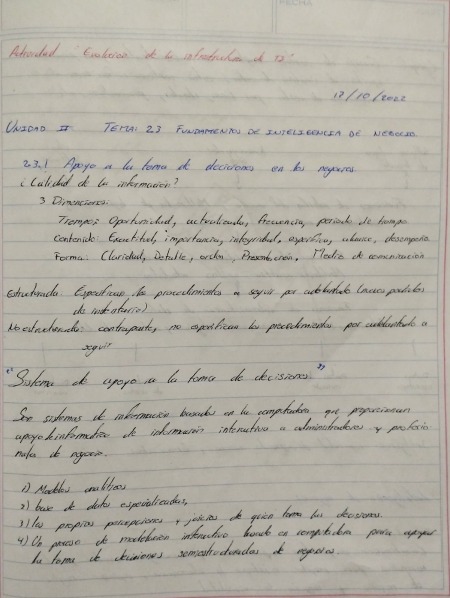 FECHA
Actividad "Evolucion de la infraestructura de TI"
17/10/2022
UNIDAD II: TEMA: 2.3 FUNDAMENTOS DE INTELIGENCIA DE NEGOCIO.
2.3.1 Apoyo a la toma de decisiones en los negocios
¿Calidad de la información?
3 Dimenciones:
Tiempo: Oportunidad, actualizada, frecuencia, periodo de tiempo
Contenido: Exactitud, importancia, integridad, especifica, alcance, desempeño
Forma: Claridad, Detalle, orden, Presentación, Medio de comunicación
Estructurada: Especifican los procedimientos a seguir por adelantado (nuevos pedidos
de inventario)
No estructurada: contraparte, no especifican los procedimientos por adelantado a
seguir
"Sistema de apoyo a la toma de decisiones."
Son sistemas de información basados en la computadora que proporcionan
apoyo informatico de información interactiva a administradores y profecio
nales de negocio.
1) Modelos analiticos
2) base de datos especializadas,
3) los propios percepciones y juicios de quien toma las decisiones.
4) Un proceso de modelacion interactivo basado en computadora para apoyar
la toma de decisiones semiestructuradas de negocios.